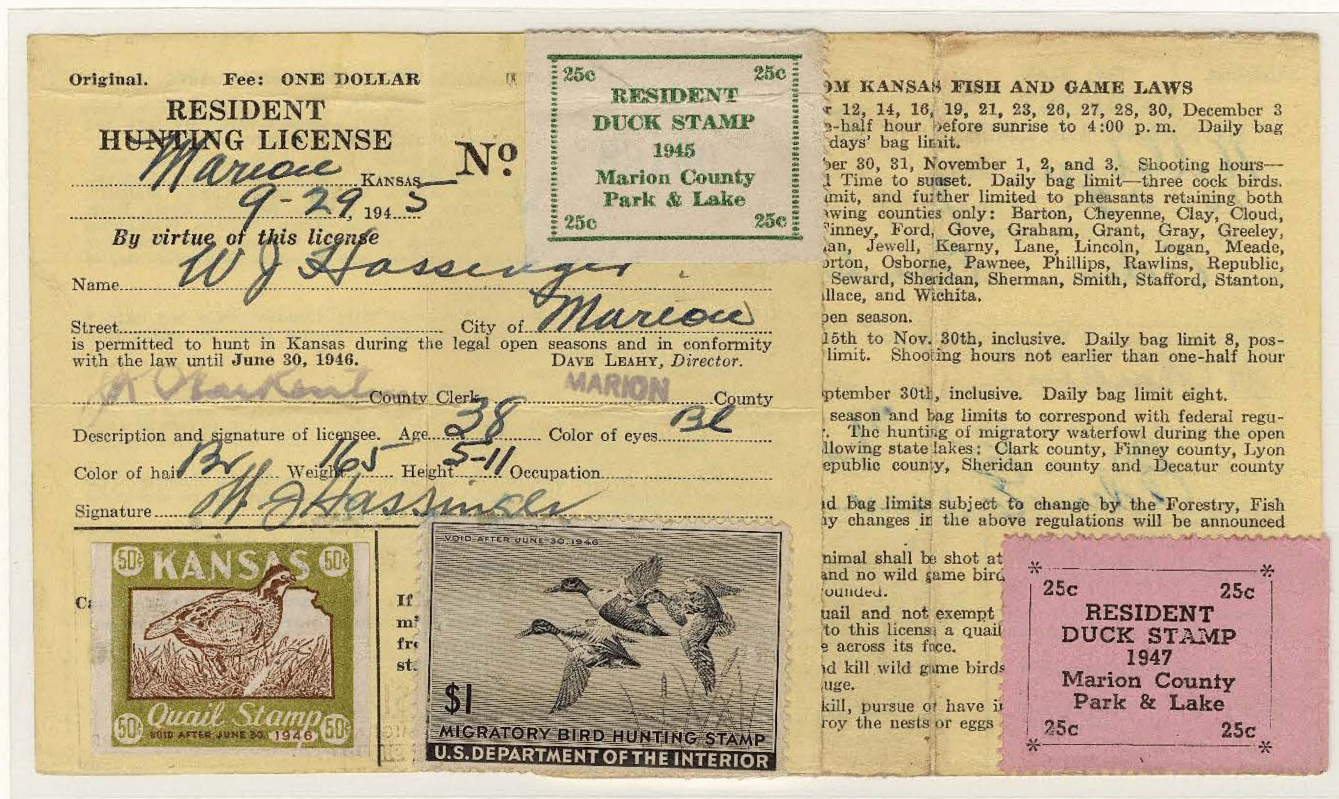 Original. Fee: ONE DOLLAR
RESIDENT
HUNTING LICENSE
No.
Marion, KANSAS
9-29, 1945
By virtue of this license
Name W J Hassinger
Street City of Marion
is permitted to hunt in Kansas during the legal open seasons and in conformity
with the law until June 30, 1946. DAVE LEAHY, Director.
County Clerk MARION County
Description and signature of licensee. Age 38 Color of eyes Bl
Color of hair Br Weight 165 Height 5-11 Occupation
Signature W J Hassinger
25c 25c
RESIDENT
DUCK STAMP
1945
Marion County
Park & Lake
25c 25c
50¢ KANSAS 50¢
50¢ Quail Stamp 50¢
VOID AFTER JUNE 30, 1946
If
fr
st
VOID AFTER JUNE 30, 1946
$1
MIGRATORY BIRD HUNTING STAMP
U.S. DEPARTMENT OF THE INTERIOR
OM KANSAS FISH AND GAME LAWS
r 12, 14, 16, 19, 21, 23, 26, 27, 28, 30, December 3
e-half hour before sunrise to 4:00 p. m. Daily bag
days' bag limit.
ber 30, 31, November 1, 2, and 3. Shooting hours—
l Time to sunset. Daily bag limit—three cock birds.
mit, and further limited to pheasants retaining both
wing counties only: Barton, Cheyenne, Clay, Cloud,
Finney, Ford, Gove, Graham, Grant, Gray, Greeley,
an, Jewell, Kearny, Lane, Lincoln, Logan, Meade,
orton, Osborne, Pawnee, Phillips, Rawlins, Republic,
Seward, Sheridan, Sherman, Smith, Stafford, Stanton,
llace, and Wichita.
pen season.
15th to Nov. 30th, inclusive. Daily bag limit 8, pos-
limit. Shooting hours not earlier than one-half hour
ptember 30th, inclusive. Daily bag limit eight.
season and bag limits to correspond with federal regu-
The hunting of migratory waterfowl during the open
llowing state lakes: Clark county, Finney county, Lyon
epublic county, Sheridan county and Decatur county
d bag limits subject to change by the Forestry, Fish
y changes in the above regulations will be announced
nimal shall be shot at
and no wild game bird
ounded.
uail and not exempt
to this license a quail
e across its face.
d kill wild game birds
uge.
kill, pursue or have i
roy the nests or eggs
25c 25c
RESIDENT
DUCK STAMP
1947
Marion County
Park & Lake
25c 25c